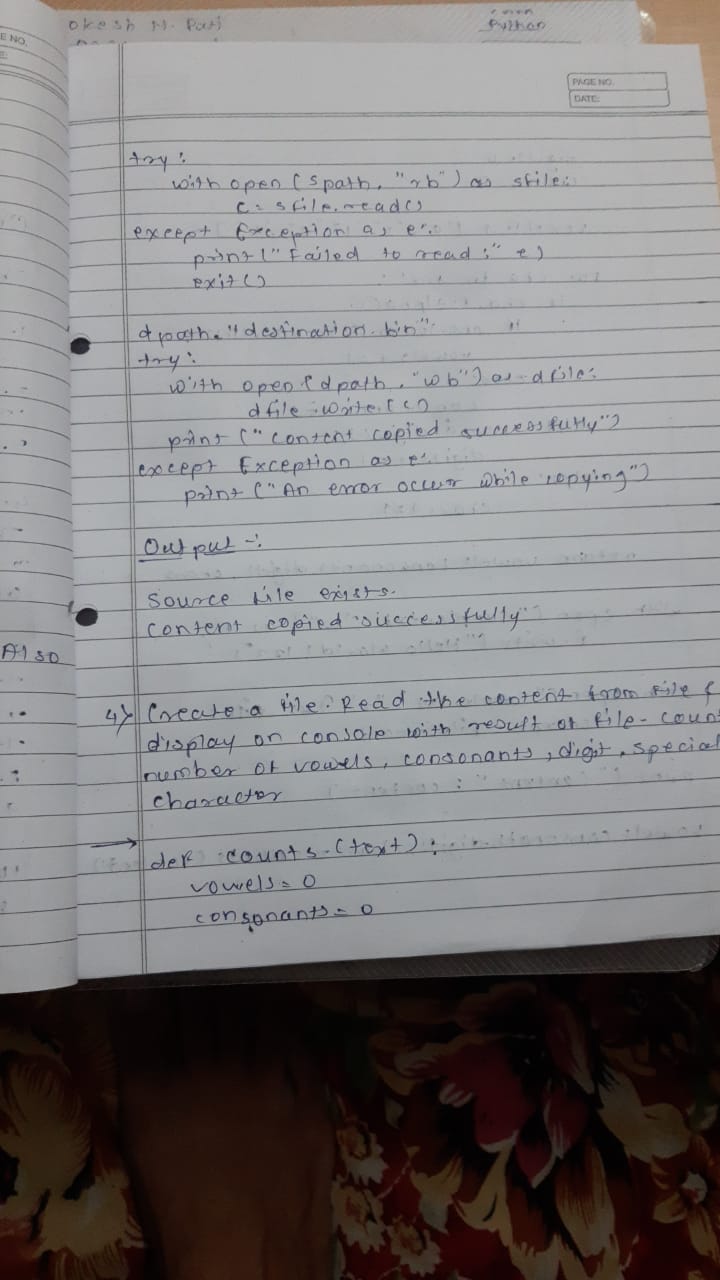 okesh N. Pati
Python
E NO.
E:
PAGE NO.
DATE:
try:
with open (spath, "rb") as sfile:
c = sfile.read()
except Exception as e:
print ("Failed to read:" e)
exit()
dpath = "destination.bin"
try:
with open (dpath, "wb") as dfile:
dfile.write(c)
print ("content copied successfully")
except Exception as e:
print ("An error occur while copying")
Output -:
Source file exists.
content copied successfully
A1 so
4) Create a file. Read the content from file &
display on console with result of file - count
number of vowels, consonants, digit, special
character
→
def counts (text):
vowels = 0
consonants = 0